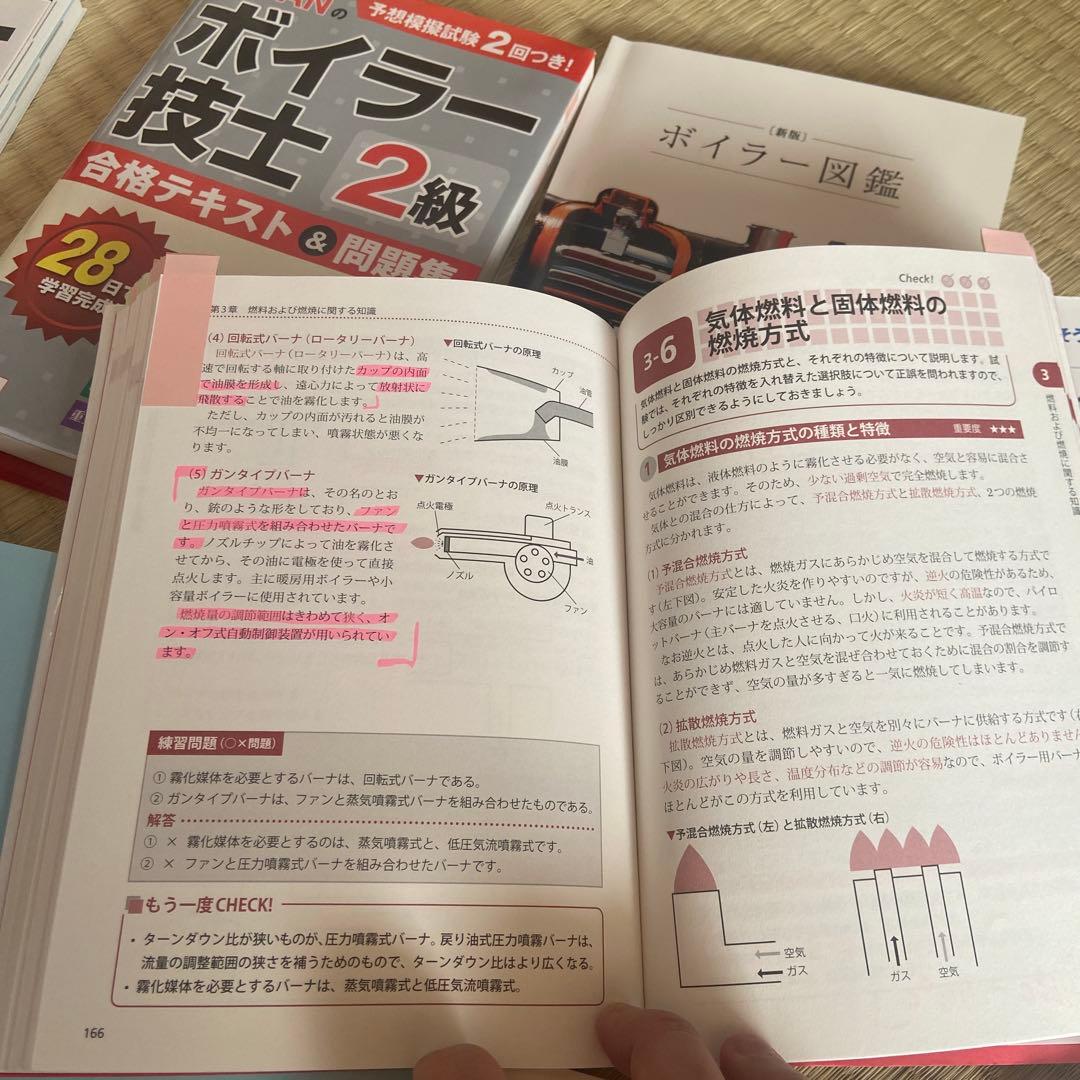 予想模擬試験2回つき!
ボイラー
技士
2級
合格テキスト&問題集
28日で
学習完成
〔新版〕
ボイラー図鑑
第3章 燃料および燃焼に関する知識
(4) 回転式バーナ(ロータリーバーナ)
回転式バーナ(ロータリーバーナ)は、高
速で回転する軸に取り付けたカップの内面
で油膜を形成し、遠心力によって放射状に
飛散することで油を霧化します。
ただし、カップの内面が汚れると油膜が
不均一になってしまい、噴霧状態が悪くな
ります。
▼回転式バーナの原理
カップ
油管
油膜
(5) ガンタイプバーナ
ガンタイプバーナは、その名のとお
り、銃のような形をしており、ファン
と圧力噴霧式を組み合わせたバーナで
す。ノズルチップによって油を霧化さ
せてから、その油に電極を使って直接
点火します。主に暖房用ボイラーや小
容量ボイラーに使用されています。
燃焼量の調節範囲はきわめて狭く、オ
ン・オフ式自動制御装置が用いられてい
ます。
▼ガンタイプバーナの原理
点火電極
点火トランス
油
ノズル
ファン
練習問題(○×問題)
① 霧化媒体を必要とするバーナは、回転式バーナである。
② ガンタイプバーナは、ファンと蒸気噴霧式バーナを組み合わせたものである。
解答
① × 霧化媒体を必要とするのは、蒸気噴霧式と、低圧気流噴霧式です。
② × ファンと圧力噴霧式バーナを組み合わせたバーナです。
もう一度CHECK!
・ターンダウン比が狭いものが、圧力噴霧式バーナ。戻り油式圧力噴霧バーナは、
流量の調整範囲の狭さを補うためのもので、ターンダウン比はより広くなる。
・霧化媒体を必要とするバーナは、蒸気噴霧式と低圧気流噴霧式。
166
Check!
3-6
気体燃料と固体燃料の
燃焼方式
気体燃料と固体燃料の燃焼方式と、それぞれの特徴について説明します。試
験では、それぞれの特徴を入れ替えた選択肢について正誤を問われますので、
しっかり区別できるようにしておきましょう。
1 気体燃料の燃焼方式の種類と特徴 重要度 ★★★
気体燃料は、液体燃料のように霧化させる必要がなく、空気と容易に混合さ
せることができます。そのため、少ない過剰空気で完全燃焼します。
気体との混合の仕方によって、予混合燃焼方式と拡散燃焼方式、2つの燃焼
方式に分かれます。
(1) 予混合燃焼方式
予混合燃焼方式とは、燃焼ガスにあらかじめ空気を混合して燃焼する方式で
す(左下図)。安定した火炎を作りやすいのですが、逆火の危険性があるため、
大容量のバーナには適していません。しかし、火炎が短く高温なので、パイロ
ットバーナ(主バーナを点火させる、口火)に利用されることがあります。
なお逆火とは、点火した人に向かって火が来ることです。予混合燃焼方式で
は、あらかじめ燃料ガスと空気を混ぜ合わせておくために混合の割合を調節す
ることができず、空気の量が多すぎると一気に燃焼してしまいます。
(2) 拡散燃焼方式
拡散燃焼方式とは、燃料ガスと空気を別々にバーナに供給する方式です(右
下図)。空気の量を調節しやすいので、逆火の危険性はほとんどありません
火炎の広がりや長さ、温度分布などの調節が容易なので、ボイラー用バーナ
ほとんどがこの方式を利用しています。
▼予混合燃焼方式(左)と拡散燃焼方式(右)
空気
ガス
ガス
空気
3
燃料および燃焼に関する知識